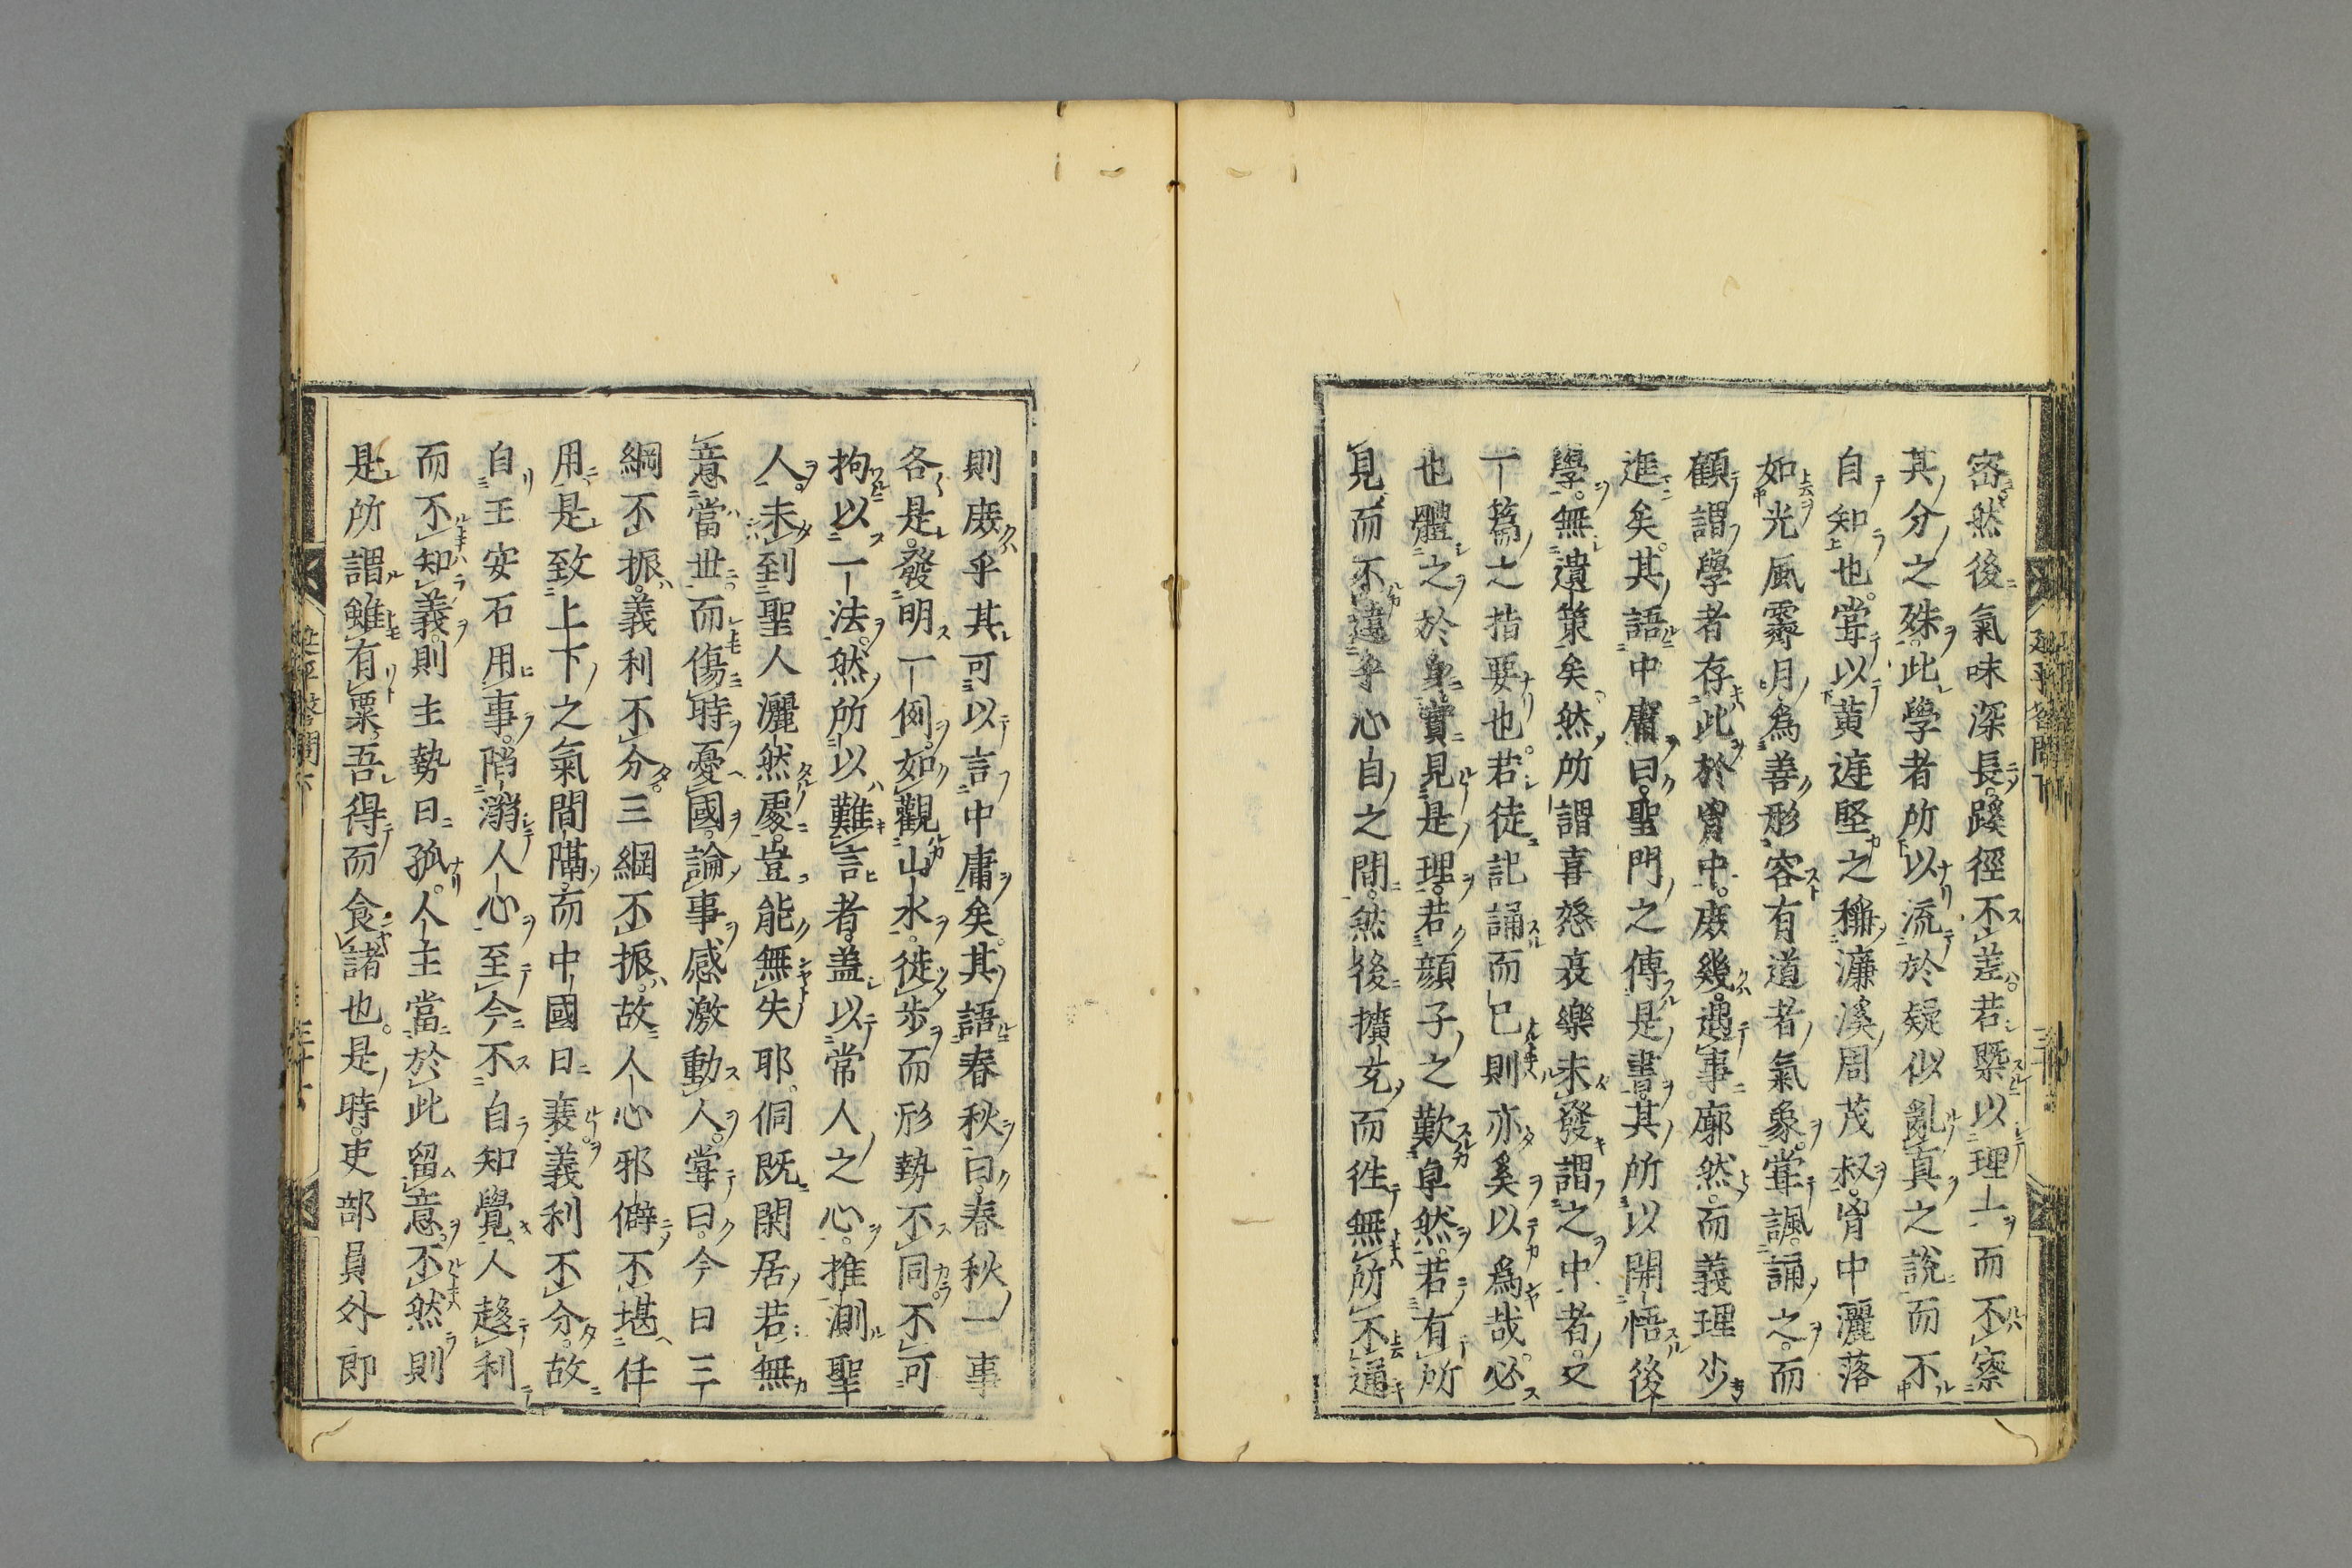 密然後氣味深長蹊徑不差若槩以理上而不察
其分之殊此學者所以流於疑似亂真之說而不
自知也嘗以黃遅堅之稱濂溪周茂叔胷中灑落
如光風霽月為善形容有道者氣象嘗諷誦之而
顧謂學者存此於胷中庻幾遇事廓然而義理少
進矣其語中庸曰聖門之傳是書其所以開悟後
學無遺策矣然所謂喜怒哀樂未發謂之中者又
一篇之指要也若徒記誦而已則亦奚以為哉必
也體之於身實見是理若顔子之歎卓然若有所
見而不違乎心自之間然後擴充而徃無所不通
則庻乎其可以言中庸矣其語春秋曰春秋一事
各是發明一例如觀山水徙步而形勢不同不可
拘以一法然所以難言者盖以常人之心推測聖
人未到聖人灑然處豈能無失耶侗既閑居若無
意當世而傷時憂國論事感激動人嘗曰今日三
綱不振義利不分三綱不振故人心邪僻不堪任
用是致上下之氣間隔而中國日衰義利不分故
自王安石用事陷溺人心至今不自知覺人趍利
而不知義則主勢日孤人主當於此留意不然則
是所謂雖有粟吾得而食諸也是時吏部員外郎
延平答問下